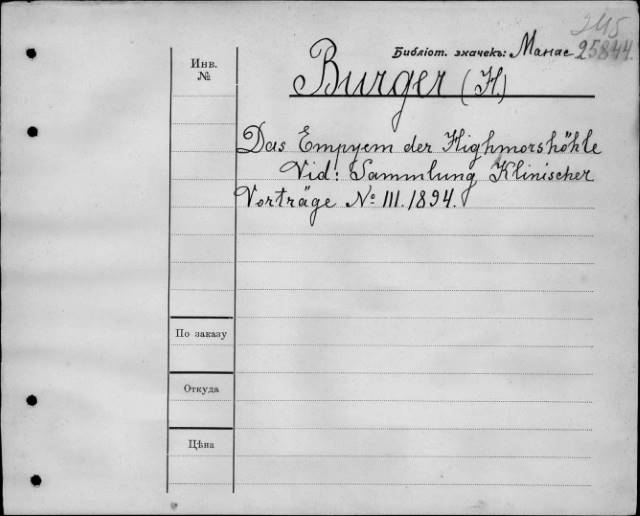 245
Библіот. значекъ: Манас 25844.
Инв. №
Burger (H)
Das Empyem der Highmorshöhle
Vid: Sammlung Klinischer
Vorträge № III. 1894.
По заказу
Откуда
Цѣна